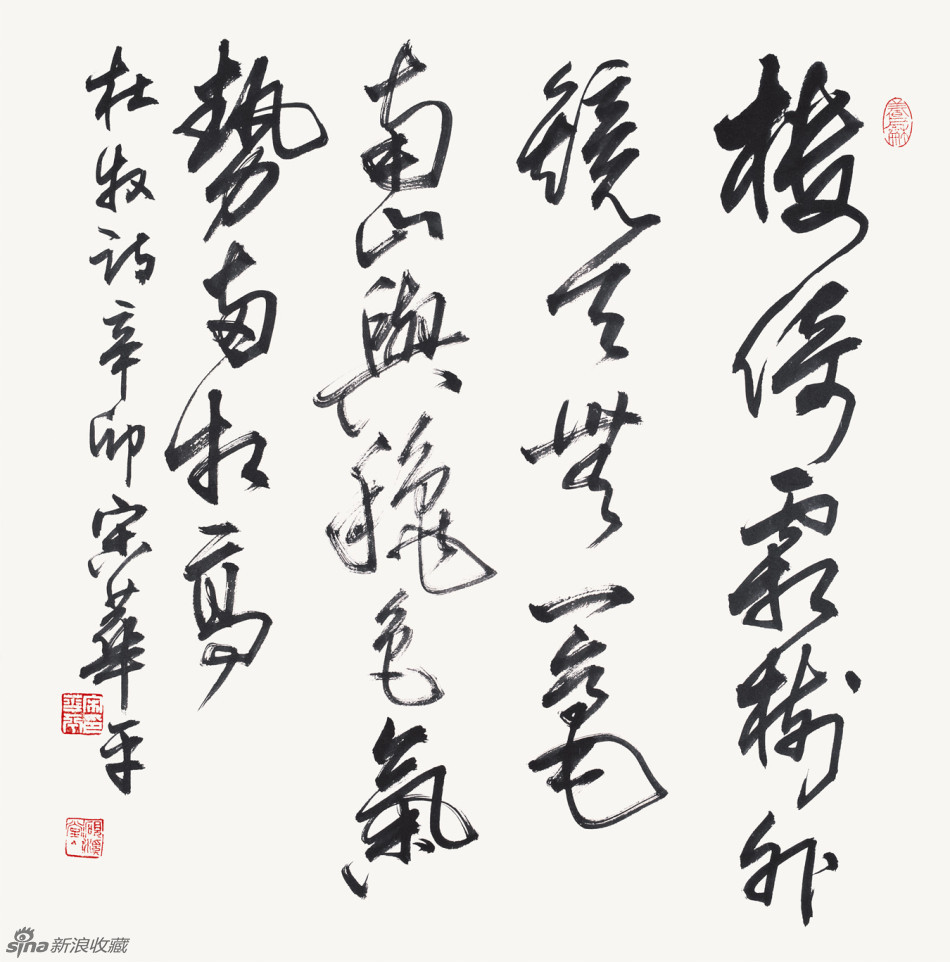 樓倚霜樹外
鏡天無一毫
南山與穐色氣
勢兩相高
杜牧詩辛卯宋華平
sina新浪收藏